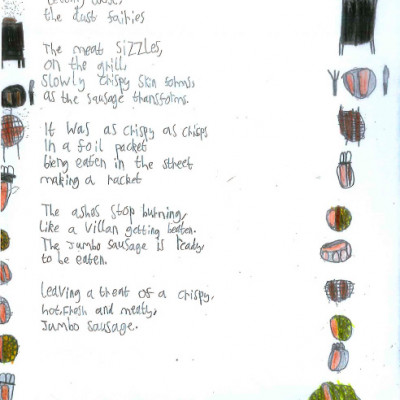 the dust fairies
The meat SIZZLES,
on the grill,
slowly crispy skin forms,
as the sausage transforms.
It was as crispy as crisps
In a foil packet
bieng eaten in the street
making a racket
The ashes stop burning,
Like a villan getting beaten.
The Jumbo sausage is ready
to be eaten.
Leaving a treat of a crispy,
hot, fresh and meaty,
Jumbo sausage.